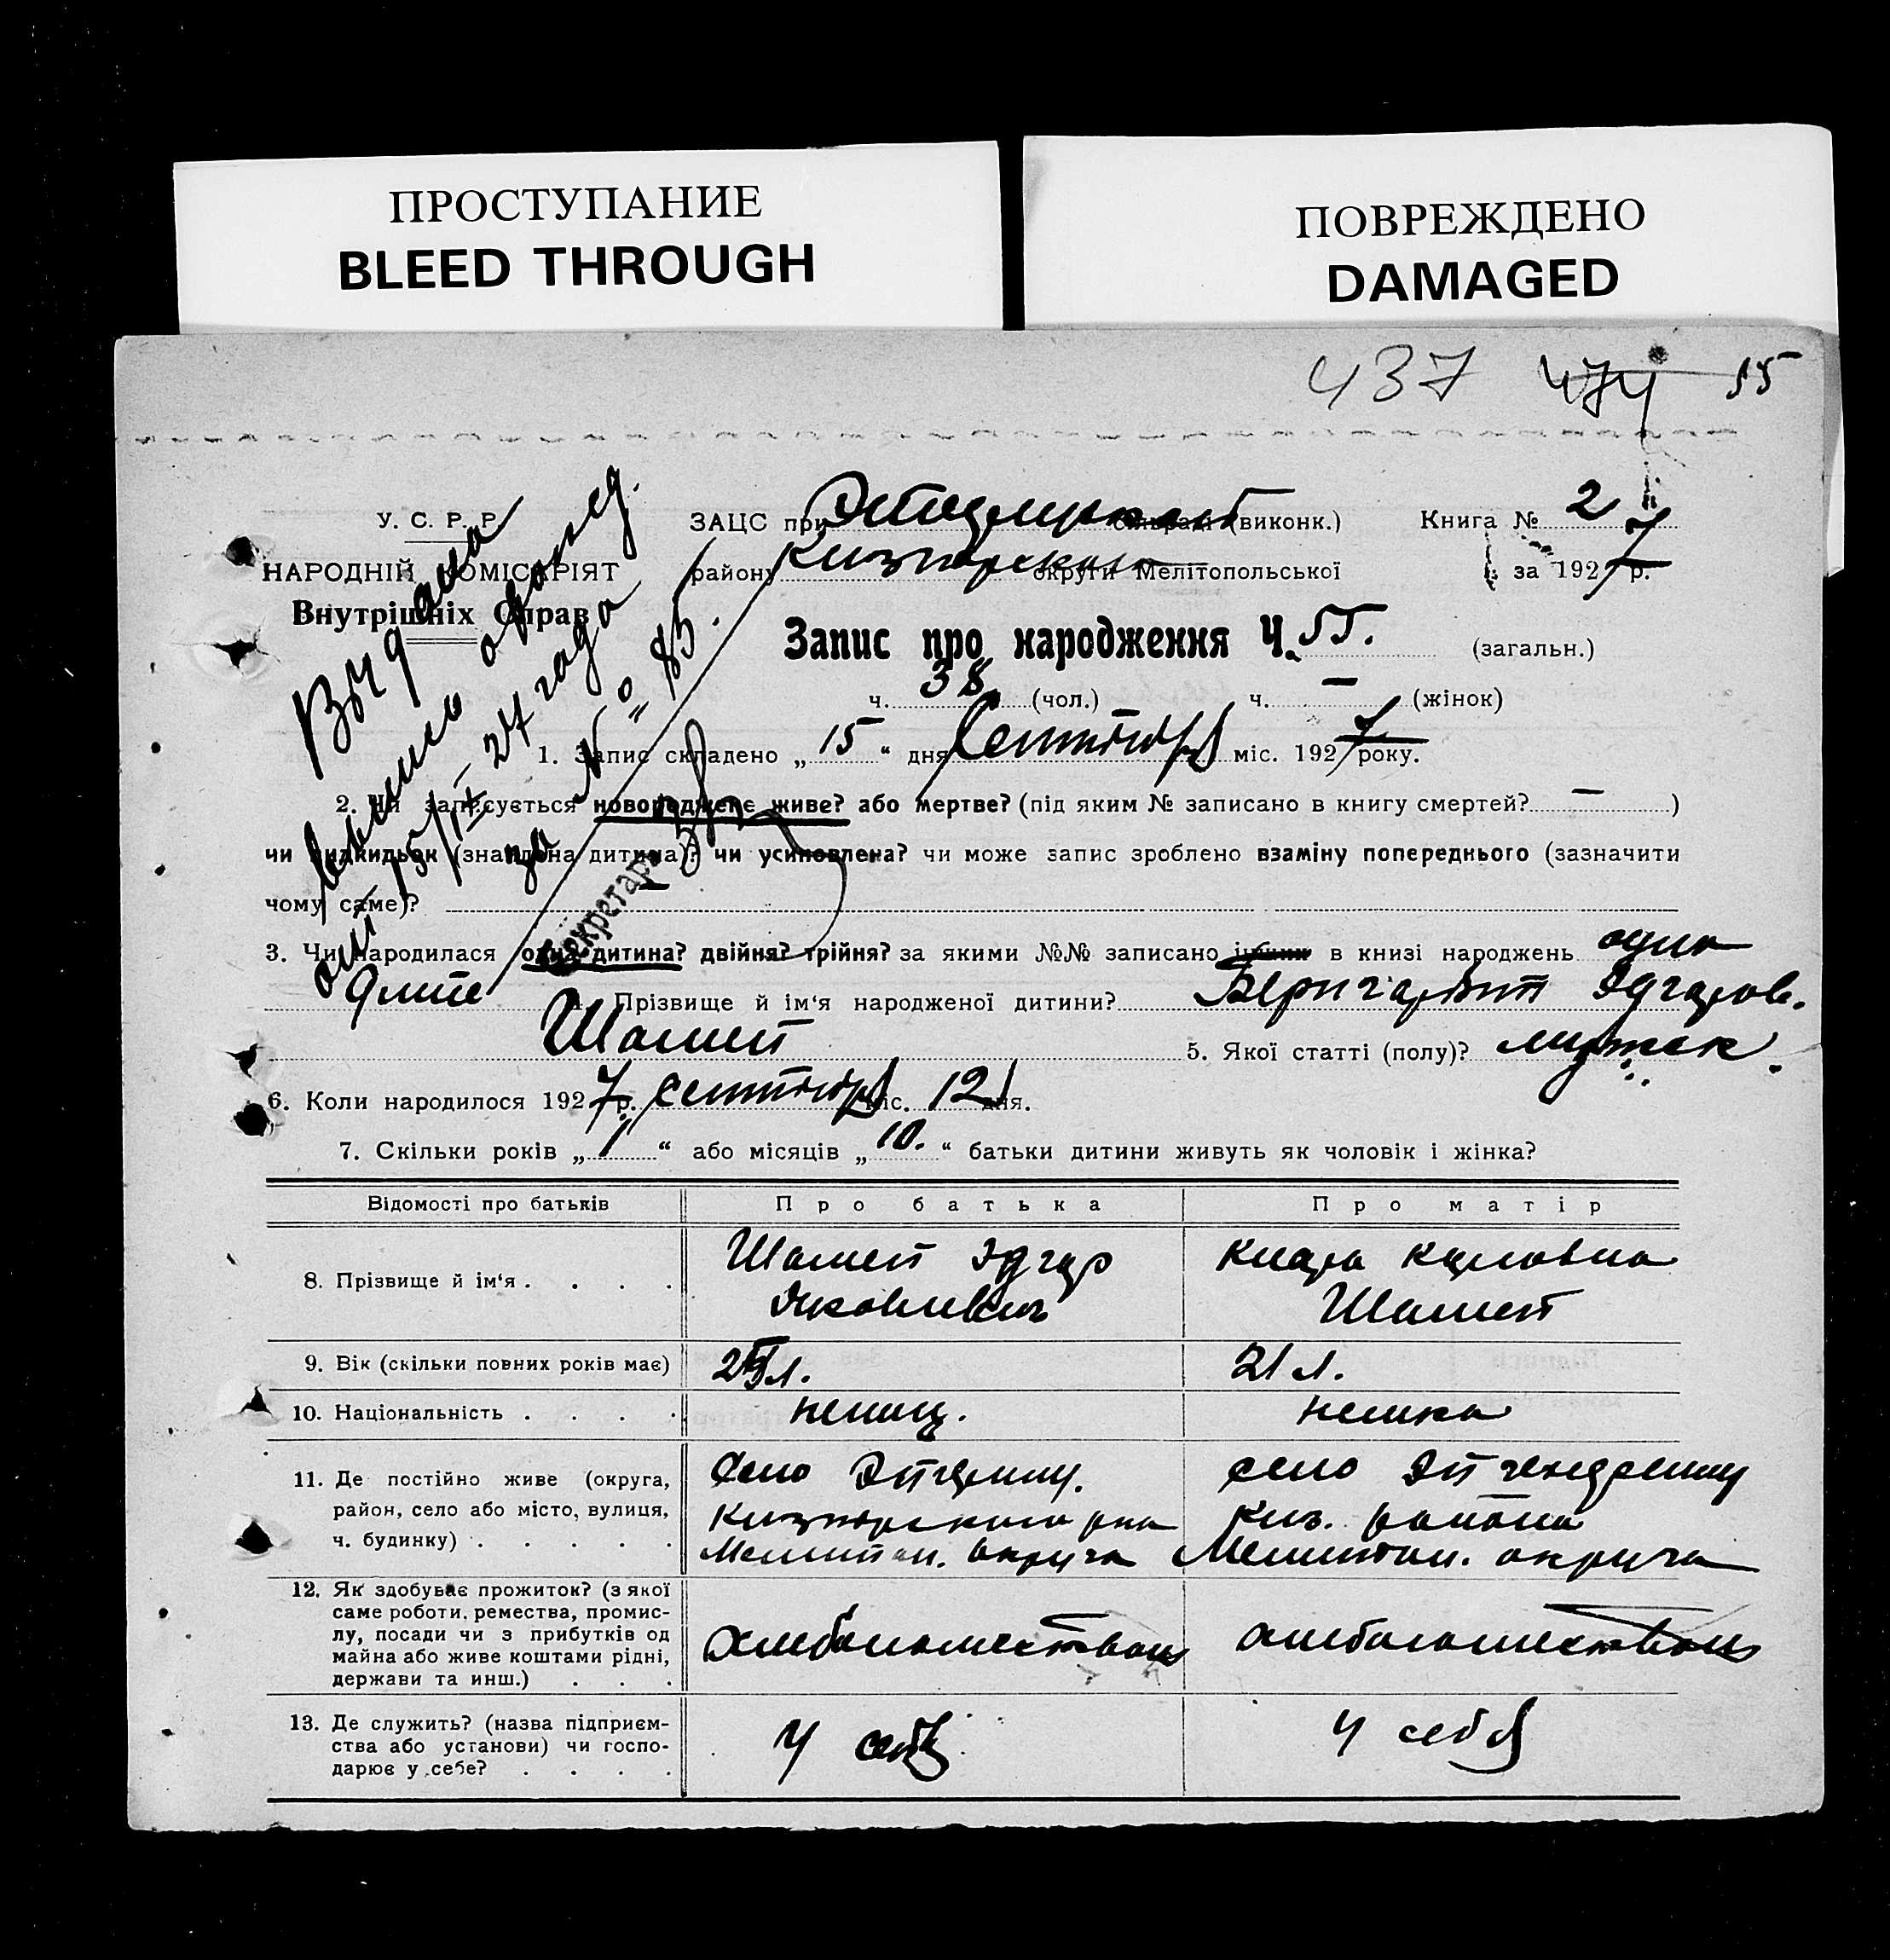 ПРОСТУПАНИЕ
BLEED THROUGH
ПОВРЕЖДЕНО
DAMAGED
437 474 55
У. С. Р. Р.
НАРОДНІЙ КОМІСАРІЯТ
Внутрішніх Справ
ЗАЦС при сільраді (виконк.) Книга № 2
району округи Мелітопольської за 1927 р.
Запис про народження Ч. 55. (загальн.)
ч. 38 (чол.) ч. — (жінок)
Выдана
выпись о рожд.
15/IX 27 года
за № 83.
Секретарь
1. Запис складено „ 15 “ дня Сентября міс. 1927 року.
2. Чи записується новороджене живе? або мертве? (під яким № записано в книгу смертей? — )
чи підкидьок (знайдена дитина)? чи усиновлена? чи може запис зроблено взаміну попереднього (зазначити
чому саме)? —
3. Чи народилася одна дитина? двійня? трійня? за якими №№ записано інших в книзі народжень одно
дите 4. Прізвище й ім‘я народженої дитини? Эдгаров.
Шамей 5. Якої статті (полу)? мужск.
6. Коли народилося 1927 р. сентября міс. 12 дня.
7. Скільки років „ 1 “ або місяців „ 10. “ батьки дитини живуть як чоловік і жінка?
Відомості про батьків Про батька Про матір
8. Прізвище й ім‘я . . . . Шамей Эдгар Яковлевич Клара Карловна Шамей
9. Вік (скільки повних років має) л. 21 л.
10. Національність . . . . немец. немка
11. Де постійно живе (округа,
район, село або місто, вулиця,
ч. будинку) . . . . .
Село
района
Мелитоп. округа
село
Киз. района
Мелитоп. округа
12. Як здобуває прожиток? (з якої
саме роботи, ремества, промис-
лу, посади чи з прибутків од
майна або живе коштами рідні,
держави та инш.) . . .
хлебопашеством хлебопашеством
13. Де служить? (назва підприєм-
ства або установи) чи госпо-
дарює у себе? . . . .
У себя У себя